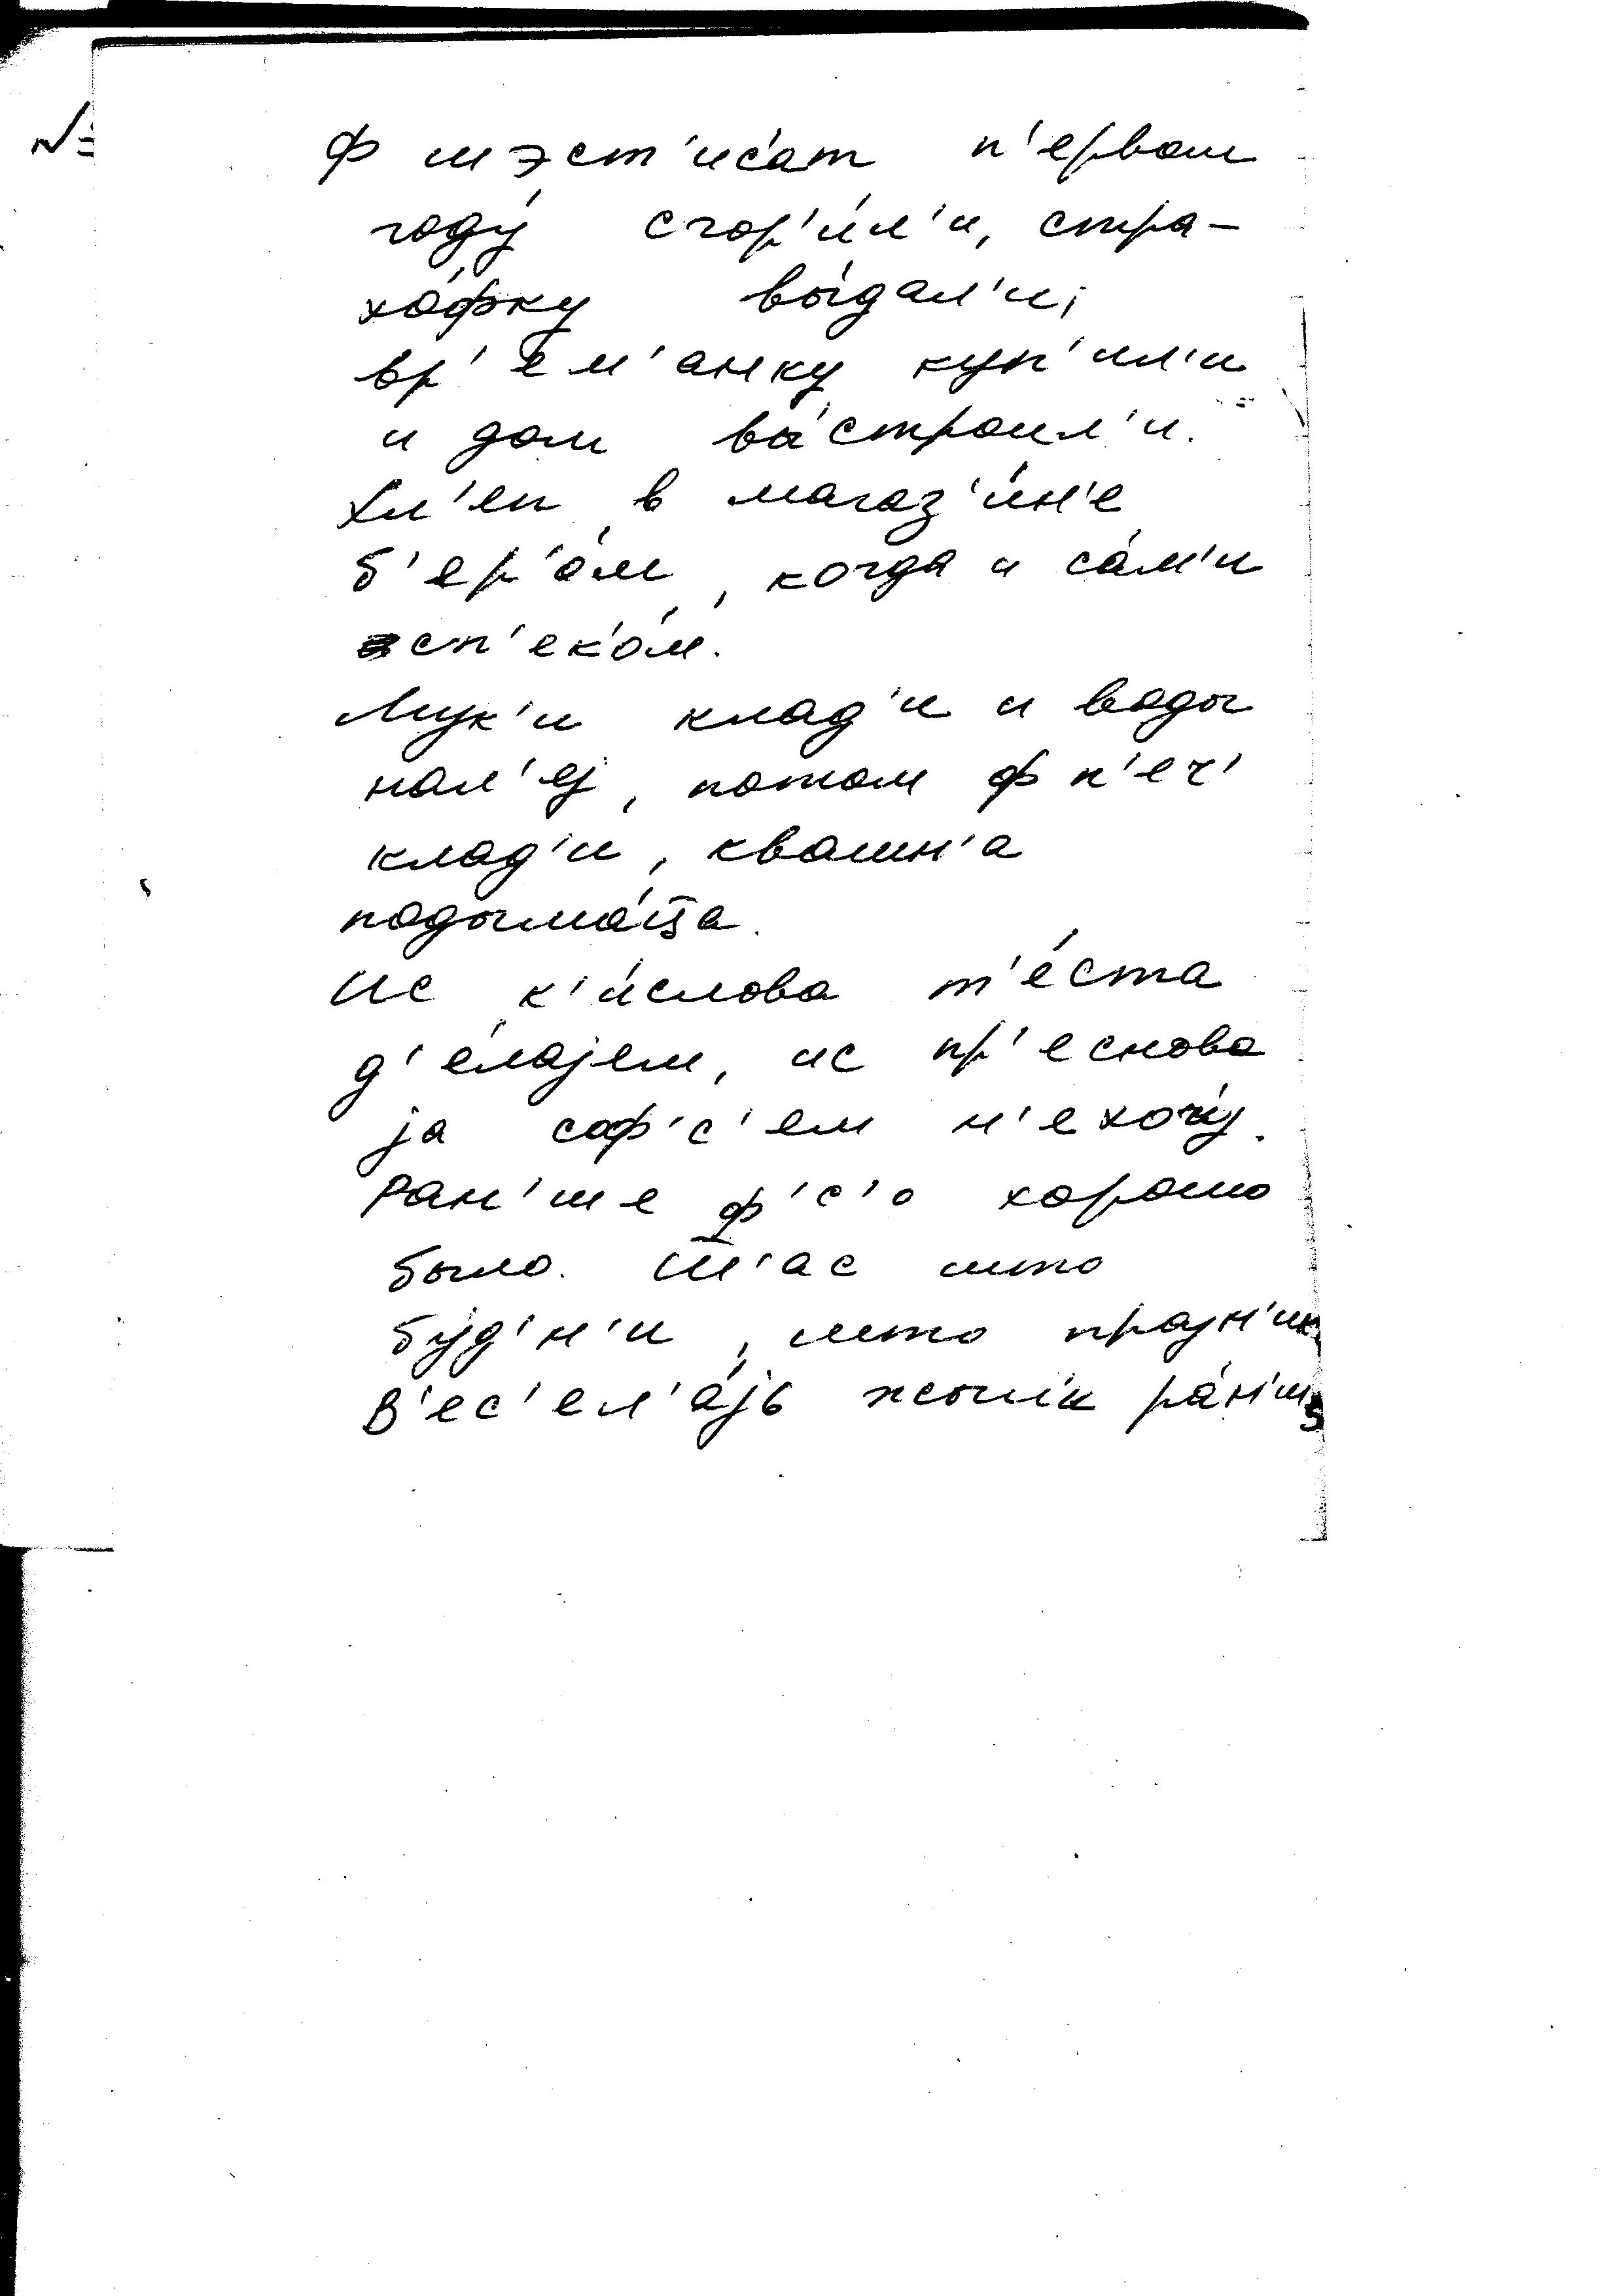 №
Ф шэст'иса́т п'ервом
году́ сгор'и́л'и, стра-
хо́фку вы́дал'и,
вр'ем'анку куп'ил'и
и дом вы́строил'и.
Хл'еп в магаз'и́н'е
б'ер'о́м, когда и са́м'и
сп'еко́м.
Мук'и клад'и и воды
нал'еј, потом ф п'еч'
клад'и, квашн'а
подыма́ц̄а.
Ис к'и́слова т'е́ста
д'е́лајем, ис пр'еснова
ја соф'с'ем н'е хочу́.
Ран'ше ф'с'о хорошо
было. Ш̄'ас што
бу́д'н'и, што празн'ик
В'ес'ел'а́јь жыл'и ра́н'ш